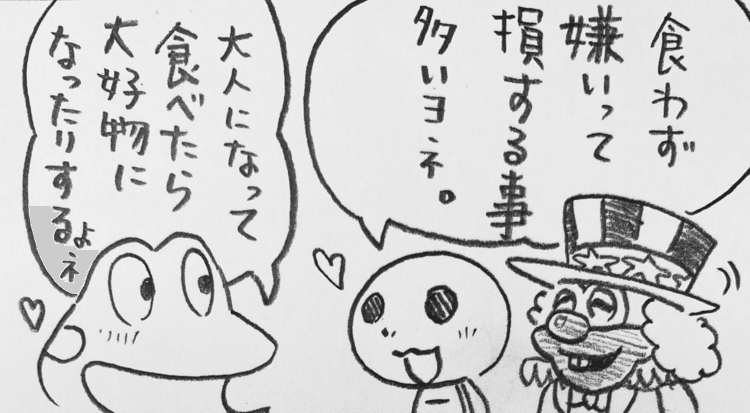 食わず
嫌いって
損する事
多いヨネ。
大人になって
食べたら
大好物に
なったりするよネ